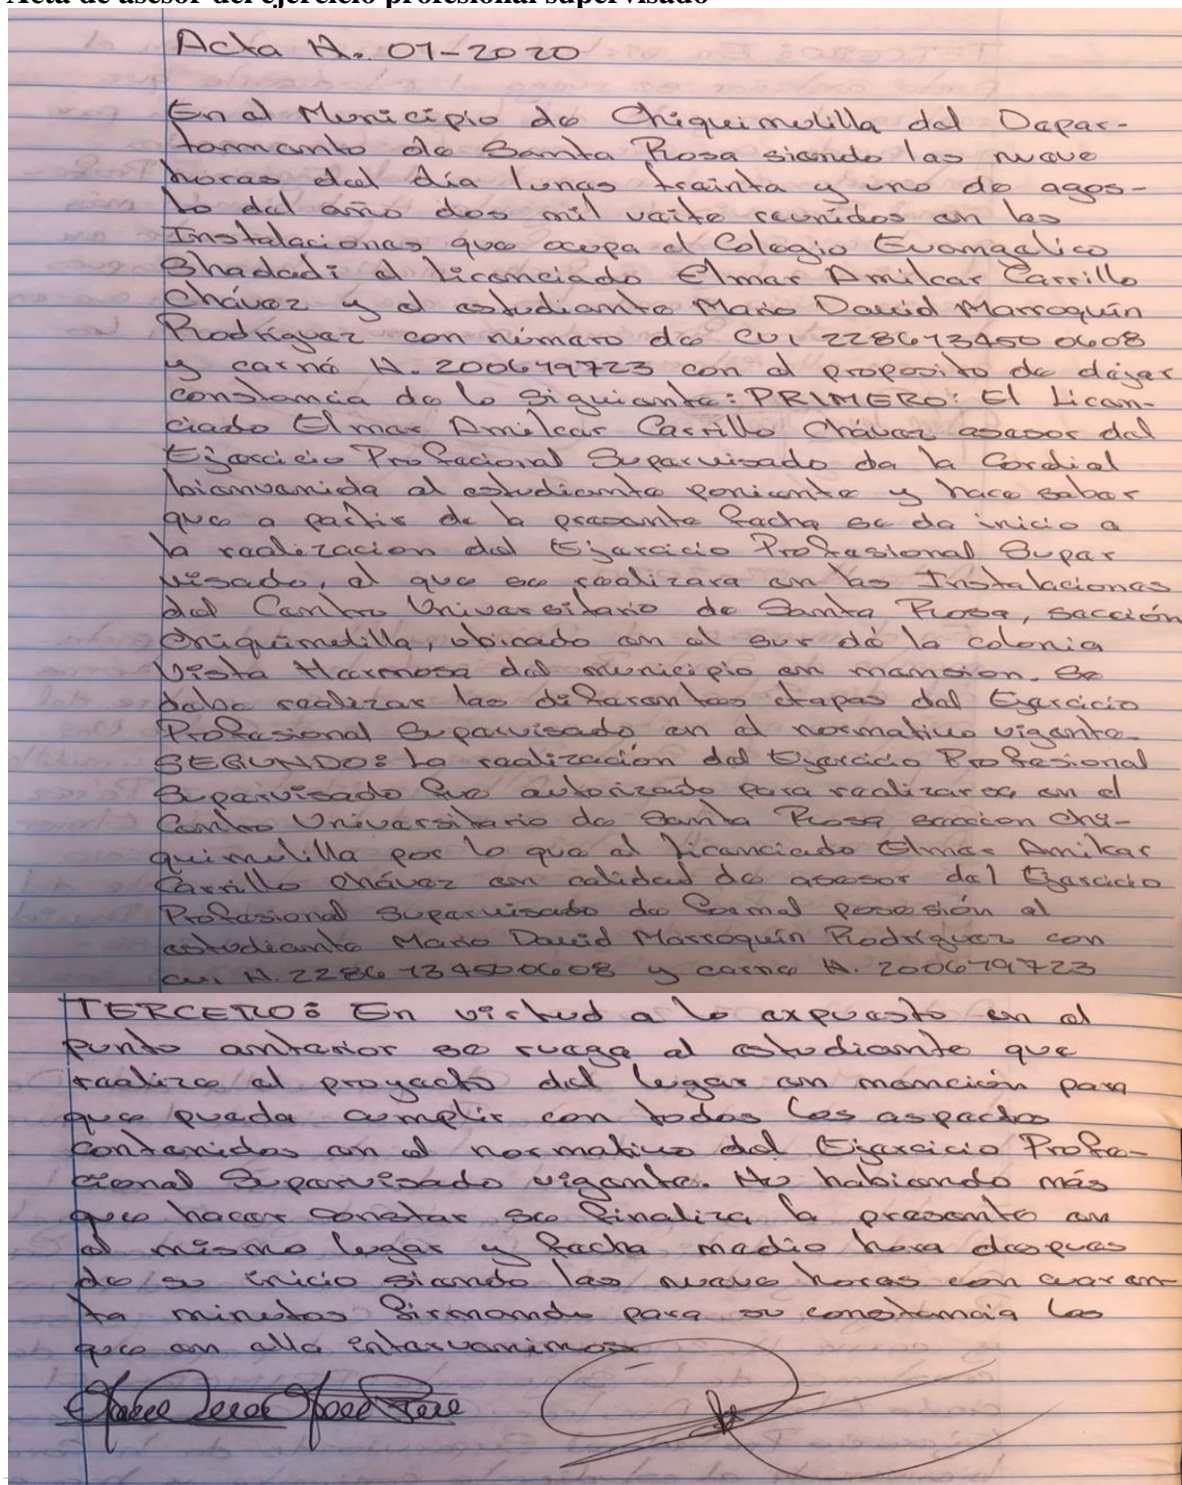 Acta de asesor del ejercicio profesional supervisado
Acta N. 01-2020
En el Municipio de Chiquimulilla del Depar-
tamento de Santa Rosa siendo las nueve
horas del día lunes treinta y uno de agos-
to del año dos mil veite reunidos en las
Instalaciones que ocupa el Colegio Evangelico
Shadadi el licenciado Elmar Amilcar Carrillo
Chávez y el estudiante Mario David Marroquín
Rodríguez con número de CUI 2286134500608
y carné N. 200679723 con el proposito de dejar
constancia de lo Siguiente: PRIMERO: El Licen-
ciado Elmar Amilcar Carrillo Chávez asesor del
Ejercicio Profecional Supervisado da la Cordial
bienvenida al estudiante poniente y hace saber
que a partir de la presente fecha se da inicio a
la realizacion del Ejercicio Profesional Super
visado, el que se realizara en las Instalaciones
del Centro Universitario de Santa Rosa, sección
Chiquimulilla, ubicado en el sur de la colonia
Vista Hermosa del municipio en mansion. Se
debe realizar las diferentes etapas del Ejercicio
Profesional Supervisado en el normativo vigente.
SEGUNDO: La realización del Ejercicio Profesional
Supervisado fue autorizado para realizarse en el
Centro Universitario de Santa Rosa seccion Chi-
quimulilla por lo que el licenciado Elmar Amilcar
Carrillo Chávez en calidad de asesor del Ejercicio
Profesional Supervisado da formal posesión al
estudiante Mario David Marroquín Rodríguez con
cui N. 2286 134500608 y carne N. 200679723
TERCERO: En virtud a lo expuesto en el
punto anterior se ruega al estudiante que
realice el proyecto del lugar en mención para
que pueda cumplir con todos los aspectos
contenidos en el normativo del Ejercicio Profe-
cional Supervisado vigente. No habiendo más
que hacer constar se finaliza la presente en
el mismo lugar y fecha media hora despues
de su inicio siendo las nueve horas con cuaren-
ta minutos firmando para su constancia los
que en ella intervenimos